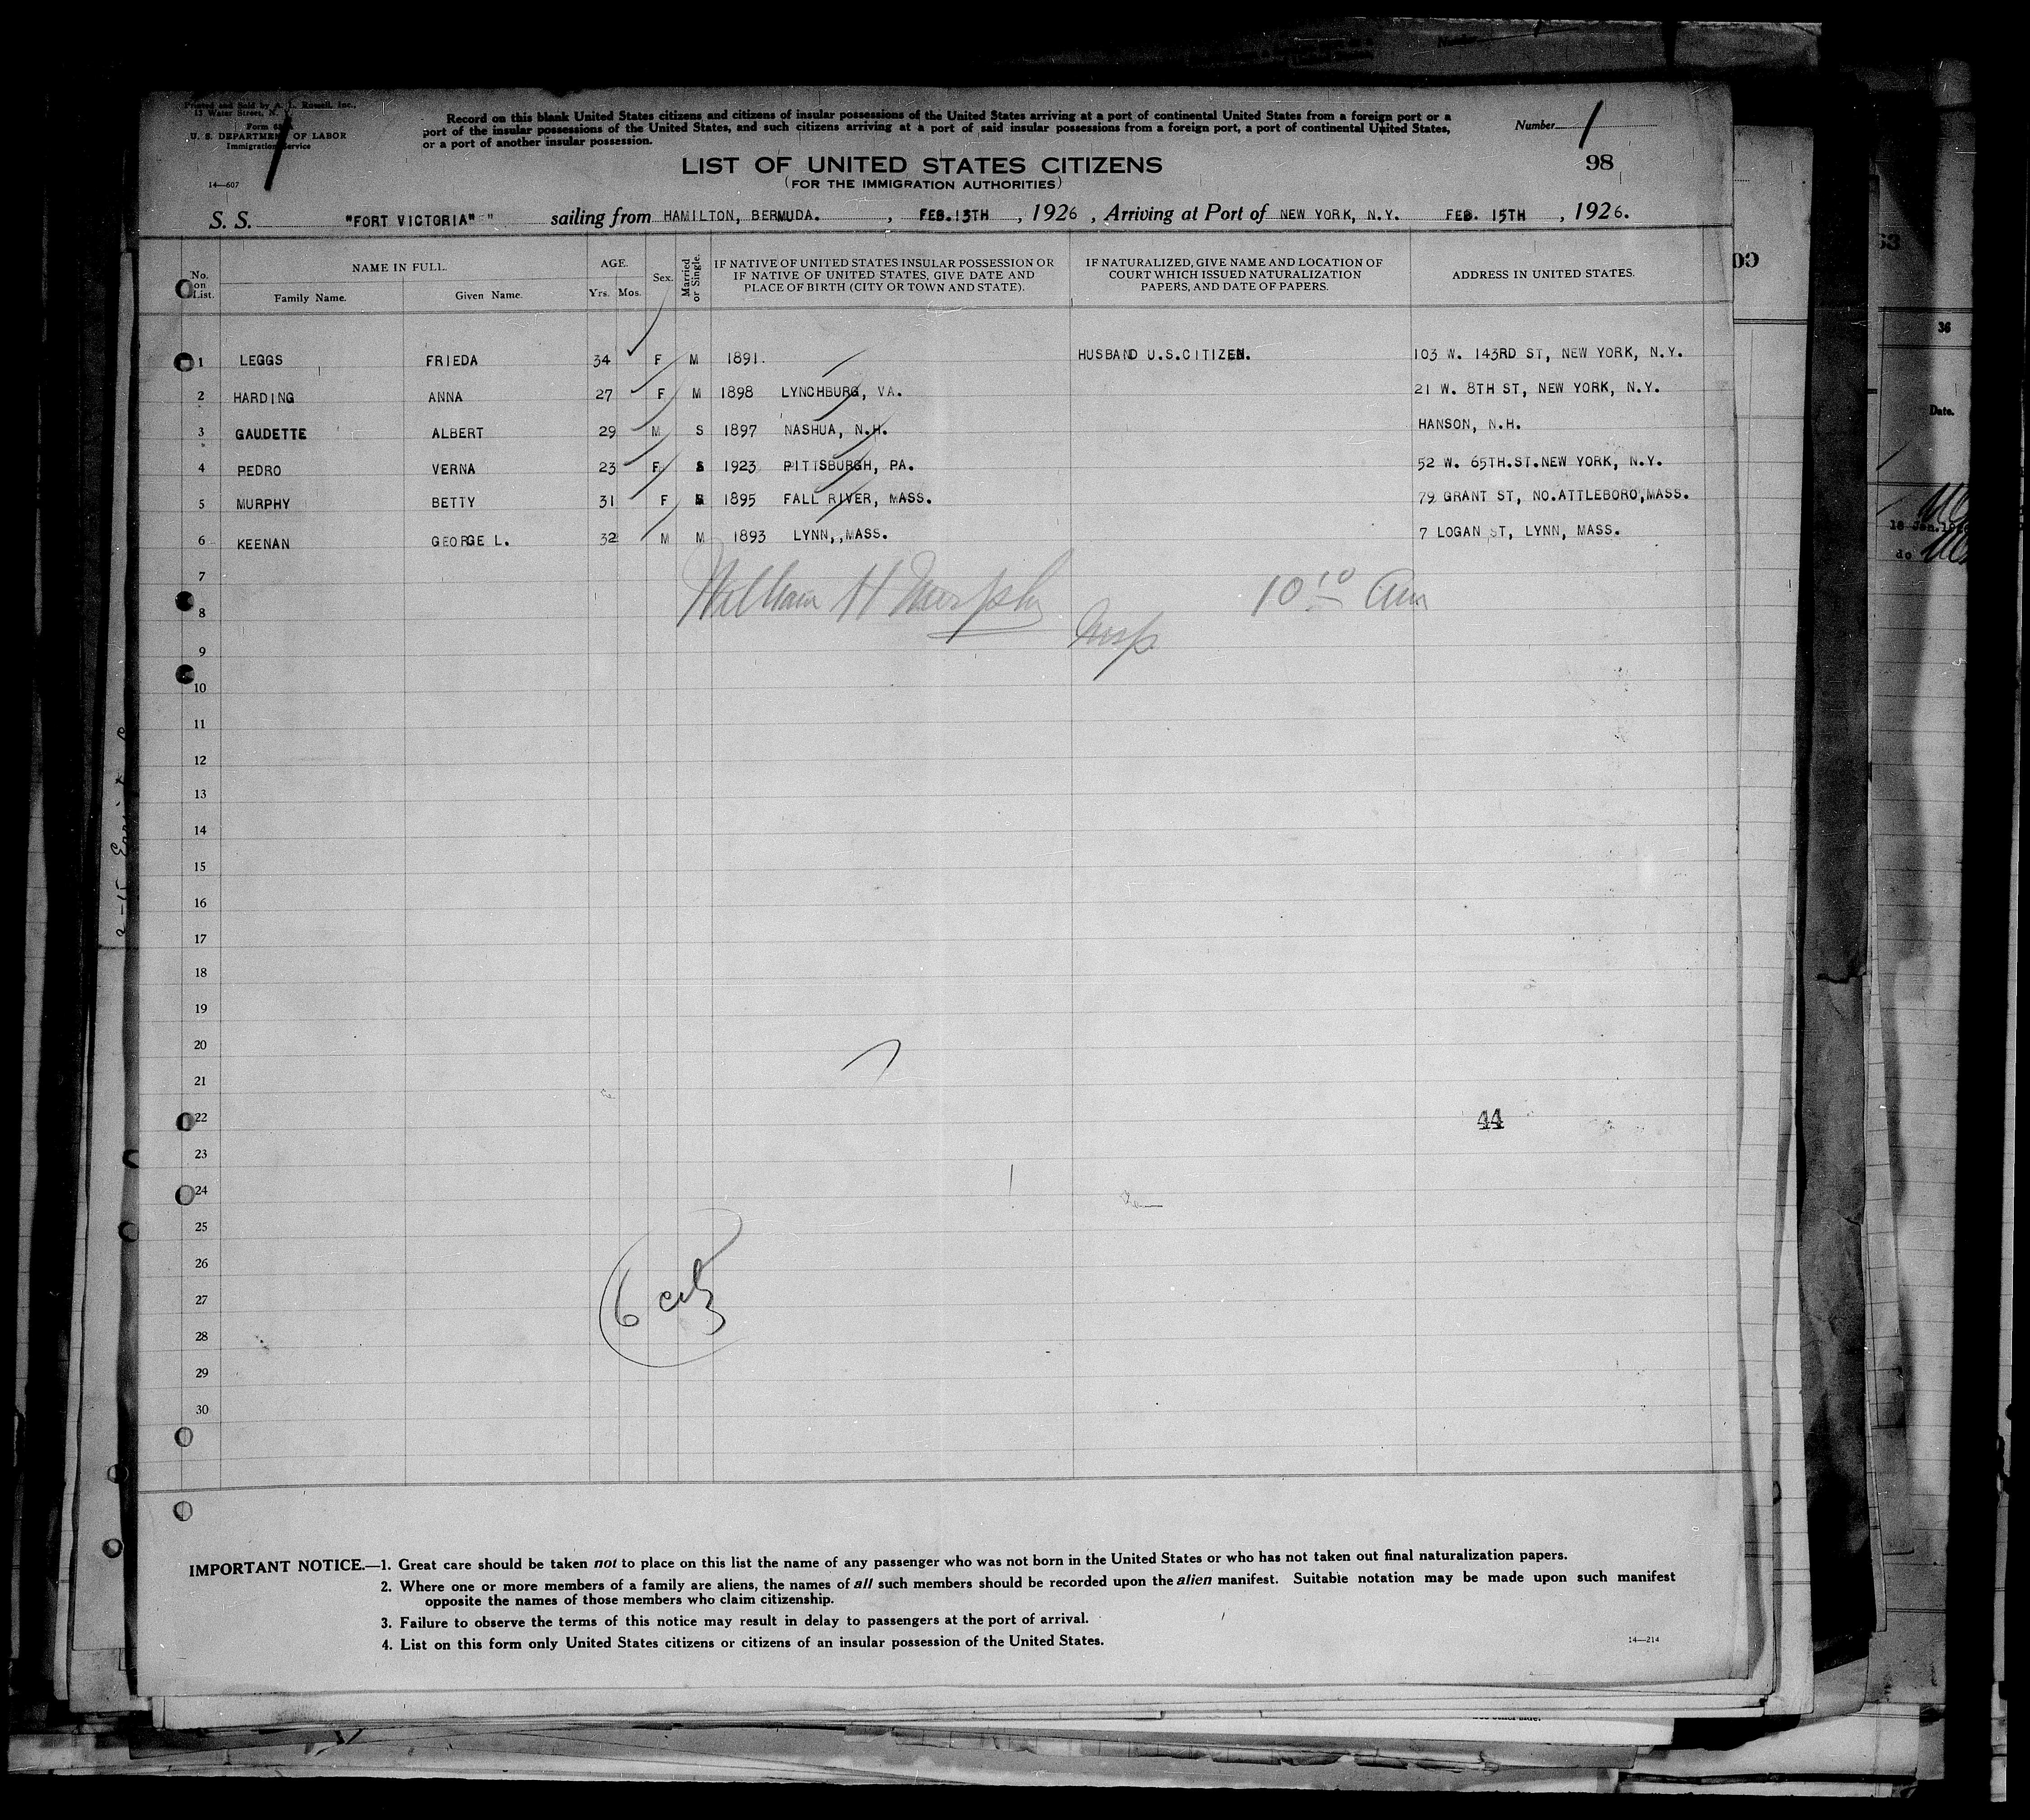 Printed and Sold by A. L. Russell, Inc.,
13 Water Street, N. Y.
Form
U. S. DEPARTMENT OF LABOR
Immigration Service
14—607
Record on this blank United States citizens and citizens of insular possessions of the United States arriving at a port of continental United States from a foreign port or a
port of the insular possessions of the United States, and such citizens arriving at a port of said insular possessions from a foreign port, a port of continental United States,
or a port of another insular possession.
Number 1
98
LIST OF UNITED STATES CITIZENS
(FOR THE IMMIGRATION AUTHORITIES)
S. S. "FORT VICTORIA" " sailing from HAMILTON, BERMUDA. , FEB.13TH , 1926 , Arriving at Port of NEW YORK, N.Y. FEB. 15TH , 1926.
No. on List. NAME IN FULL. AGE. Sex. Married or Single. IF NATIVE OF UNITED STATES INSULAR POSSESSION OR IF NATIVE OF UNITED STATES, GIVE DATE AND PLACE OF BIRTH (CITY OR TOWN AND STATE). IF NATURALIZED, GIVE NAME AND LOCATION OF COURT WHICH ISSUED NATURALIZATION PAPERS, AND DATE OF PAPERS. ADDRESS IN UNITED STATES.
Family Name. Given Name. Yrs. Mos.
1 LEGGS FRIEDA 34 F M 1891. HUSBAND U.S.CITIZEN. 103 W. 143RD ST, NEW YORK, N.Y.
2 HARDING ANNA 27 F M 1898 LYNCHBURG, VA. 21 W. 8TH ST, NEW YORK, N.Y.
3 GAUDETTE ALBERT 29 M S 1897 NASHUA, N.H. HANSON, N.H.
4 PEDRO VERNA 23 F S 1923 PITTSBURGH, PA. 52 W. 65TH.ST.NEW YORK, N.Y.
5 MURPHY BETTY 31 F 1895 FALL RIVER, MASS. 79 GRANT ST, NO.ATTLEBORO,MASS.
6 KEENAN GEORGE L. 32 M M 1893 LYNN,,MASS. 7 LOGAN ST, LYNN, MASS.
7
William H Murphy 10 10 am
8
Insp.
9
10
11
12
13
14
15
16
17
18
19
20
21
22 44
23
24
25
26
27 6 citz
28
29
30
IMPORTANT NOTICE.—1. Great care should be taken not to place on this list the name of any passenger who was not born in the United States or who has not taken out final naturalization papers.
2. Where one or more members of a family are aliens, the names of all such members should be recorded upon the alien manifest. Suitable notation may be made upon such manifest
opposite the names of those members who claim citizenship.
3. Failure to observe the terms of this notice may result in delay to passengers at the port of arrival.
4. List on this form only United States citizens or citizens of an insular possession of the United States.
14—214
36
Date.
do